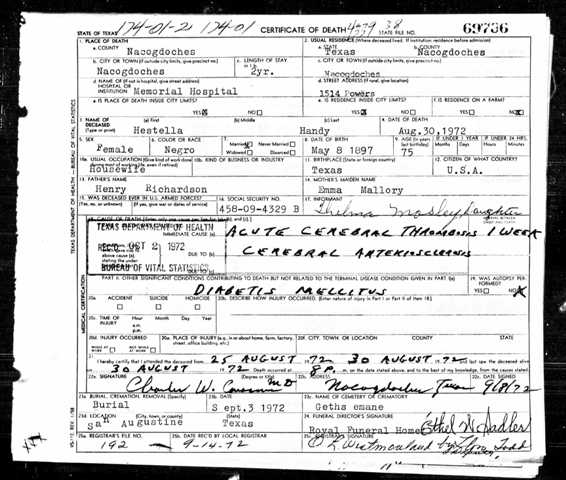 174-01-2 174-01 4279 38
STATE OF TEXAS CERTIFICATE OF DEATH STATE FILE NO. 69736
1. PLACE OF DEATH 2. USUAL RESIDENCE (Where deceased lived. If institution: residence before admission)
a. COUNTY a. STATE b. COUNTY
Nacogdoches Texas Nacogdoches
b. CITY OR TOWN (If outside city limits, give precinct no.) c. LENGTH OF STAY c. CITY OR TOWN (If outside city limits, give precinct no.)
Nacogdoches 2yr. Nacogdoches
d. NAME OF (If not in hospital, give street address) d. STREET ADDRESS (If rural, give location)
HOSPITAL OR
INSTITUTION Memorial Hospital 1514 Powers
e. IS PLACE OF DEATH INSIDE CITY LIMITS? e. IS RESIDENCE INSIDE CITY LIMITS? f. IS RESIDENCE ON A FARM?
YES NO YES NO YES NO
3. NAME OF DECEASED (a) First (b) Middle (c) Last 4. DATE OF DEATH
(Type or print) Hestella Handy Aug.30,1972
5. SEX 6. COLOR OR RACE 7. Married Never Married 8. DATE OF BIRTH 9. AGE IF UNDER 1 YEAR IF UNDER 24 HRS.
Female Negro Widowed Divorced May 8 1897 75 Months Days Hours Minutes
10a. USUAL OCCUPATION (Give kind of work done 10b. KIND OF BUSINESS OR INDUSTRY 11. BIRTHPLACE (State or foreign country) 12. CITIZEN OF WHAT COUNTRY?
Housewife Texas U.S.A.
13. FATHER'S NAME 14. MOTHER'S MAIDEN NAME
Henry Richardson Emma Mallory
15. WAS DECEASED EVER IN U.S. ARMED FORCES? 16. SOCIAL SECURITY NO. 17. INFORMANT
458-09-4329 B Thelma Mosley, daughter
TEXAS DEPARTMENT OF HEALTH
IMMEDIATE CAUSE (a) ACUTE CEREBRAL THROMBOSIS 1 WEEK
REC'D OCT 2 1972
DUE TO (b) CEREBRAL ARTERIOSCLEROSIS
BUREAU OF VITAL STATISTICS
DUE TO (c)
PART II. OTHER SIGNIFICANT CONDITIONS CONTRIBUTING TO DEATH BUT NOT RELATED TO THE TERMINAL DISEASE CONDITION GIVEN IN PART I(a) 19. WAS AUTOPSY PERFORMED?
DIABETIS MELLITUS YES NO
20a. ACCIDENT SUICIDE HOMICIDE 20b. DESCRIBE HOW INJURY OCCURRED. (Enter nature of injury in Part I or Part II of item 18)
20c. TIME OF INJURY Hour Month Day Year
a.m.
p.m.
20d. INJURY OCCURRED 20e. PLACE OF INJURY (e.g. in or about home, farm, factory, street, office building, etc.) 20f. CITY, TOWN, OR LOCATION COUNTY STATE
WHILE AT WORK NOT WHILE AT WORK
21. I hereby certify that I attended the deceased from 25 AUGUST 1972 30 AUGUST 1972 and last saw the deceased alive
30 AUGUST 1972 Death occurred at 8 P.m. on the date stated above, and to the best of my knowledge, from the causes stated.
22a. SIGNATURE (Degree or title) 22b. ADDRESS 22c. DATE SIGNED
Charles W. MD Nacogdoches Texas 9/8/72
23a. BURIAL, CREMATION, REMOVAL (Specify) 23b. DATE 23c. NAME OF CEMETERY OR CREMATORY
Burial Sept.3 1972 Gethsemane
23d. LOCATION (City, town, or county) (State) 24. FUNERAL DIRECTOR'S SIGNATURE
San Augustine Texas Royal Funeral Home Ethel W. Sadler
25a. REGISTRAR'S FILE NO. 25b. DATE REC'D BY LOCAL REGISTRAR 25c. REGISTRAR'S SIGNATURE
192 9-14-72 Todd
TEXAS DEPARTMENT OF HEALTH - BUREAU OF VITAL STATISTICS
MEDICAL CERTIFICATION